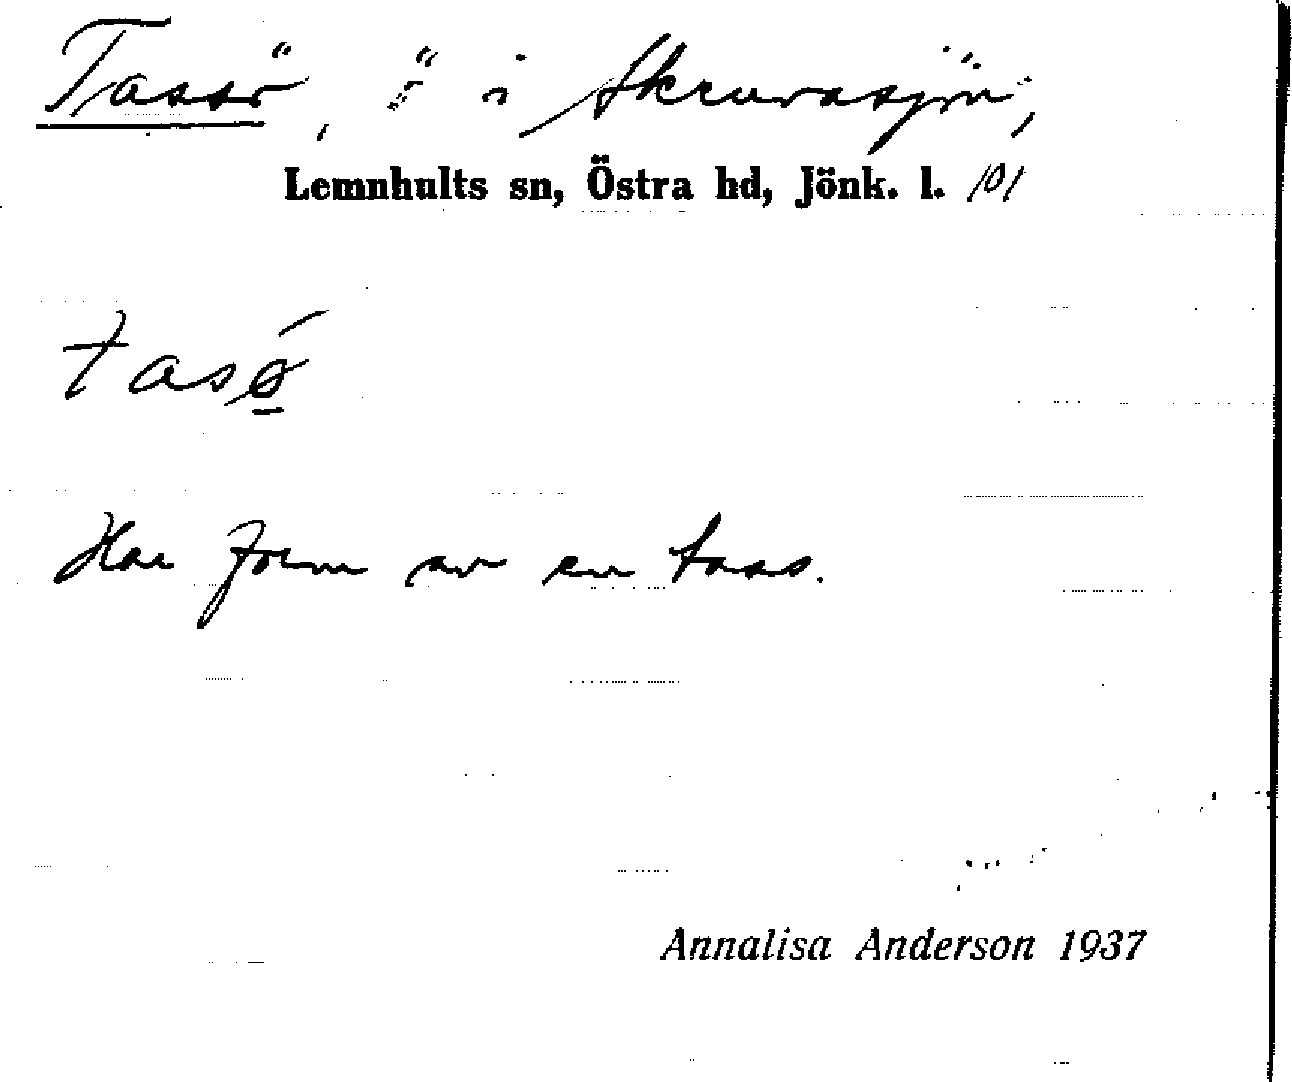 Tassö, ö i Skruvasjön,
Lemnhults sn, Östra hd, Jönk. l. 101
tasǿ̱
Har form av en tass.
Annalisa Anderson 1937